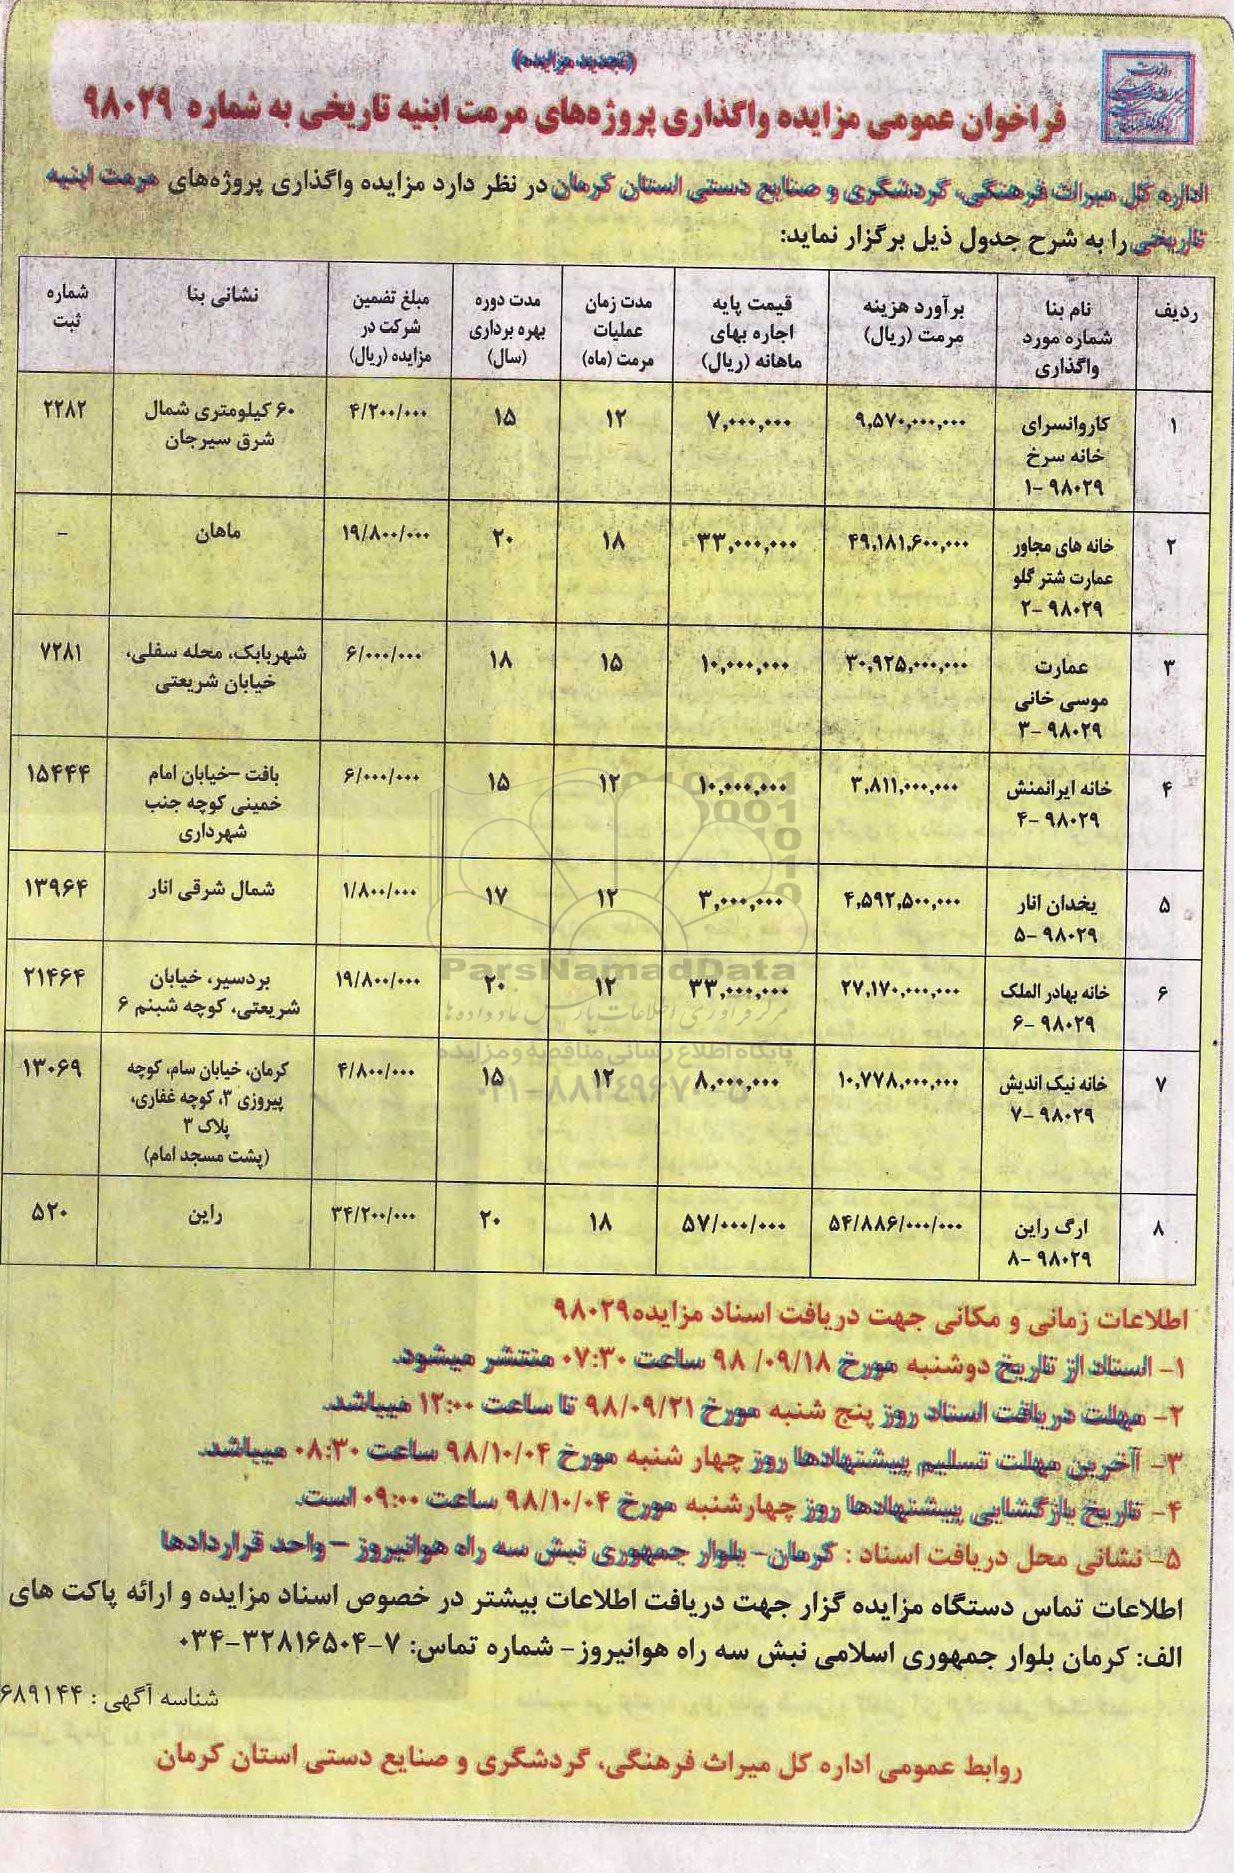 (تجدید مزایده)
فراخوان عمومی مزایده واگذاری پروژه‌های مرمت ابنیه تاریخی به شماره ۹۸۰۲۹
اداره کل میراث فرهنگی، گردشگری و صنایع دستی استان کرمان در نظر دارد مزایده واگذاری پروژه‌های مرمت ابنیه
تاریخی را به شرح جدول ذیل برگزار نماید:
ردیف | نام بنا شماره مورد واگذاری | برآورد هزینه مرمت (ریال) | قیمت پایه اجاره بهای ماهانه (ریال) | مدت زمان عملیات مرمت (ماه) | مدت دوره بهره برداری (سال) | مبلغ تضمین شرکت در مزایده (ریال) | نشانی بنا | شماره ثبت
۱ | کاروانسرای خانه سرخ ۹۸۰۲۹-۱ | ۹,۵۷۰,۰۰۰,۰۰۰ | ۷,۰۰۰,۰۰۰ | ۱۲ | ۱۵ | ۴/۲۰۰/۰۰۰ | ۶۰ کیلومتری شمال شرق سیرجان | ۲۲۸۲
۲ | خانه های مجاور عمارت شتر گلو ۹۸۰۲۹-۲ | ۴۹,۱۸۱,۶۰۰,۰۰۰ | ۳۳,۰۰۰,۰۰۰ | ۱۸ | ۲۰ | ۱۹/۸۰۰/۰۰۰ | ماهان | -
۳ | عمارت موسی خانی ۹۸۰۲۹-۳ | ۳۰,۹۲۵,۰۰۰,۰۰۰ | ۱۰,۰۰۰,۰۰۰ | ۱۵ | ۱۸ | ۶/۰۰۰/۰۰۰ | شهربابک، محله سفلی، خیابان شریعتی | ۷۲۸۱
۴ | خانه ایرانمنش ۹۸۰۲۹-۴ | ۳,۸۱۱,۰۰۰,۰۰۰ | ۱۰,۰۰۰,۰۰۰ | ۱۲ | ۱۵ | ۶/۰۰۰/۰۰۰ | بافت -خیابان امام خمینی کوچه جنب شهرداری | ۱۵۴۴۴
۵ | یخدان انار ۹۸۰۲۹-۵ | ۴,۵۹۲,۵۰۰,۰۰۰ | ۳,۰۰۰,۰۰۰ | ۱۲ | ۱۷ | ۱/۸۰۰/۰۰۰ | شمال شرقی انار | ۱۳۹۶۴
۶ | خانه بهادر الملک ۹۸۰۲۹-۶ | ۲۷,۱۷۰,۰۰۰,۰۰۰ | ۳۳,۰۰۰,۰۰۰ | ۱۲ | ۲۰ | ۱۹/۸۰۰/۰۰۰ | بردسیر، خیابان شریعتی، کوچه شبنم ۶ | ۲۱۴۶۴
۷ | خانه نیک اندیش ۹۸۰۲۹-۷ | ۱۰,۷۷۸,۰۰۰,۰۰۰ | ۸,۰۰۰,۰۰۰ | ۱۲ | ۱۵ | ۴/۸۰۰/۰۰۰ | کرمان، خیابان سام، کوچه پیروزی ۳، کوچه غفاری، پلاک ۳ (پشت مسجد امام) | ۱۳۰۶۹
۸ | ارگ راین ۹۸۰۲۹-۸ | ۵۴/۸۸۶/۰۰۰/۰۰۰ | ۵۷/۰۰۰/۰۰۰ | ۱۸ | ۲۰ | ۳۴/۲۰۰/۰۰۰ | راین | ۵۲۰
ParsNamadData
مرکز فرآوری اطلاعات پارس نماد داده ها
پایگاه اطلاع رسانی مناقصه و مزایده
۰۲۱-۸۸۳۴۹۶۷۰-۵
اطلاعات زمانی و مکانی جهت دریافت اسناد مزایده۹۸۰۲۹
۱- اسناد از تاریخ دوشنبه مورخ ۹۸/۰۹/۱۸ ساعت ۰۷:۳۰ منتشر میشود.
۲- مهلت دریافت اسناد روز پنج شنبه مورخ ۹۸/۰۹/۲۱ تا ساعت ۱۲:۰۰ میباشد.
۳- آخرین مهلت تسلیم پیشنهادها روز چهار شنبه مورخ ۹۸/۱۰/۰۴ ساعت ۰۸:۳۰ میباشد.
۴- تاریخ بازگشایی پیشنهادها روز چهارشنبه مورخ ۹۸/۱۰/۰۴ ساعت ۰۹:۰۰ است.
۵- نشانی محل دریافت اسناد : کرمان- بلوار جمهوری نبش سه راه هوانیروز -واحد قراردادها
اطلاعات تماس دستگاه مزایده گزار جهت دریافت اطلاعات بیشتر در خصوص اسناد مزایده و ارائه پاکت های
الف: کرمان بلوار جمهوری اسلامی نبش سه راه هوانیروز- شماره تماس: ۷-۳۲۸۱۶۵۰۴-۰۳۴
شناسه آگهی : ۶۸۹۱۴۴
روابط عمومی اداره کل میراث فرهنگی، گردشگری و صنایع دستی استان کرمان